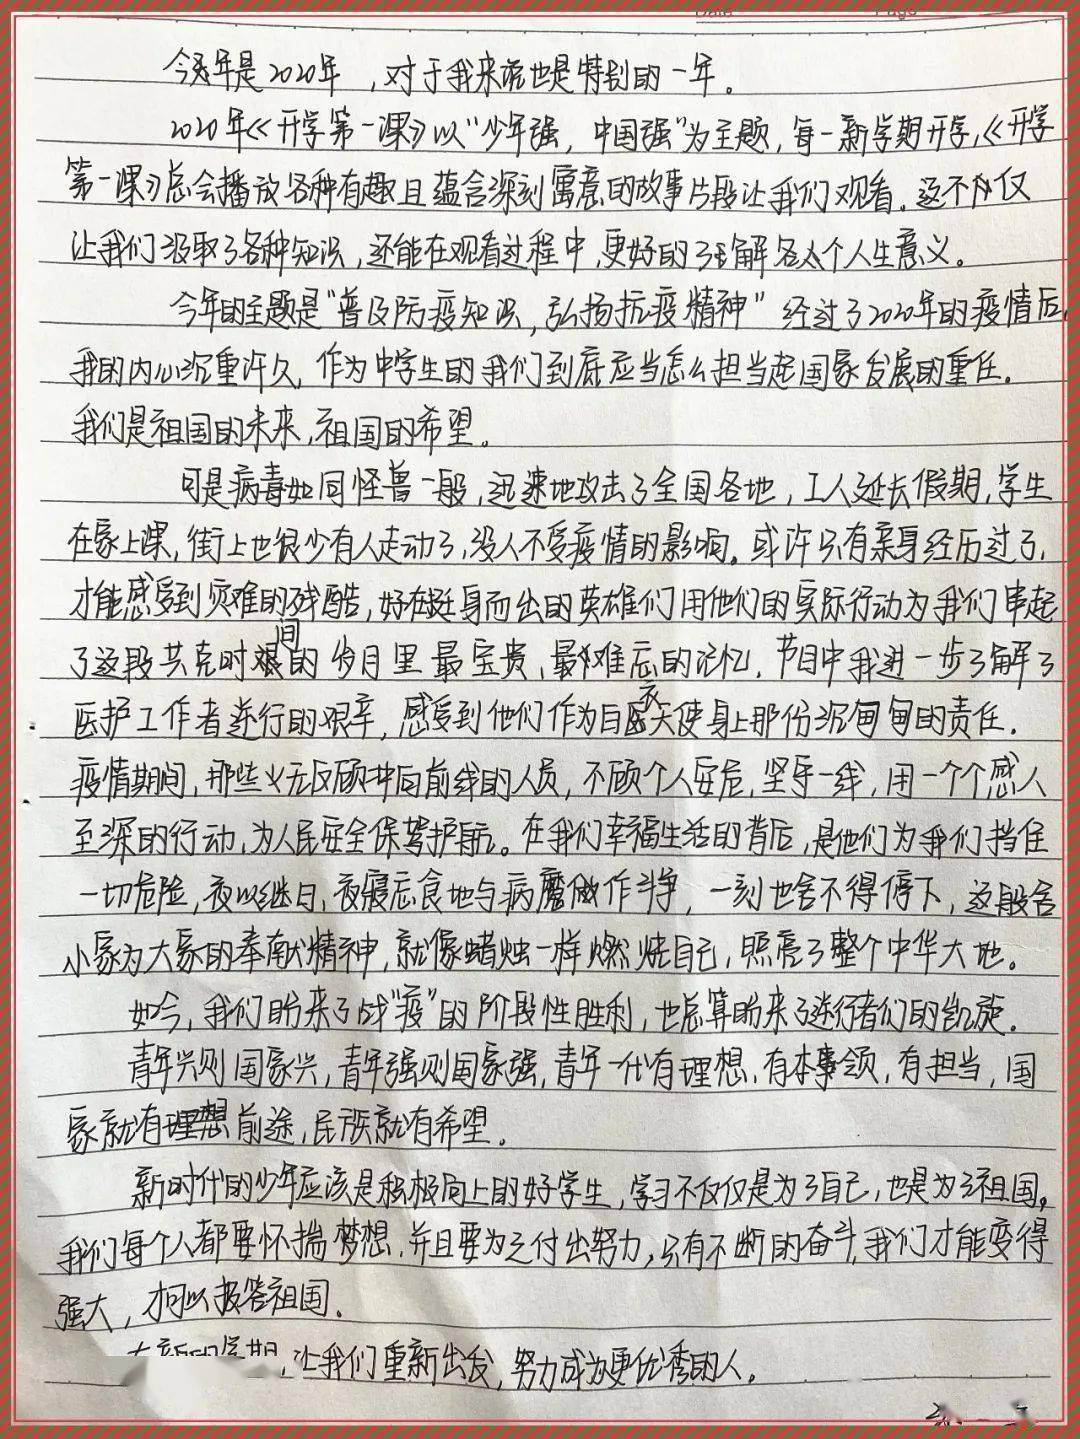 Date
Page
今年是2020年，对于我来说也是特别的一年。
2020年《开学第一课》以“少年强，中国强”为主题，每一新学期开学，《开学
第一课》总会播放各种有趣且蕴含深刻寓意的故事片段让我们观看。这不仅仅
让我们汲取了各种知识，还能在观看过程中，更好的了解各个人生意义。
今年的主题是“普及防疫知识，弘扬抗疫精神”经过了2020年的疫情后，
我的内心沉重许久，作为中学生的我们到底应当怎么担当起国家发展的重任。
我们是祖国的未来，祖国的希望。
可是病毒如同怪兽一般，迅速地攻击了全国各地，工人延长假期，学生
在家上课，街上也很少有人走动了，没人不受疫情的影响。或许只有亲身经历过了，
才能感受到灾难的残酷，好在挺身而出的英雄们用他们的实际行动为我们串起
了这段共克时艰间的岁月里最宝贵、最难忘的记忆．节目中我进一步了解了
医护工作者逆行的艰辛，感受到他们作为白衣天使身上那份沉甸甸的责任．
疫情期间，那些义无反顾冲向前线的人员，不顾个人安危，坚守一线，用一个个感人
至深的行动，为人民安全保驾护航。在我们幸福生活的背后，是他们为我们挡住
一切危险，夜以继日，夜寝忘食地与病魔做斗争，一刻也舍不得停下，这般舍
小家为大家的奉献精神，就像蜡烛一样燃烧自己，照亮了整个中华大地。
如今，我们盼来了战“疫”的阶段性胜利，也总算盼来了逆行者们的凯旋．
青年兴则国家兴，青年强则国家强，青年一代有理想，有本事领，有担当，国
家就有前途，民族就有希望．
新时代的少年应该是积极向上的好学生，学习不仅仅是为了自己，也是为了祖国，
我们每个人都要怀揣梦想．并且要为之付出努力，只有不断的奋斗，我们才能变得
强大，才可以报答祖国．
在新的学期，让我们重新出发，努力成为更优秀的人。